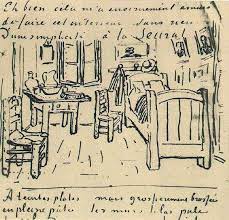 Eh bien cela m'a énormément amusé
de faire cet interieur sans rien
d'une simplicité à la Seurat
A teintes plates mais grossierement brossées
en pleine pâte les murs lilas pâle